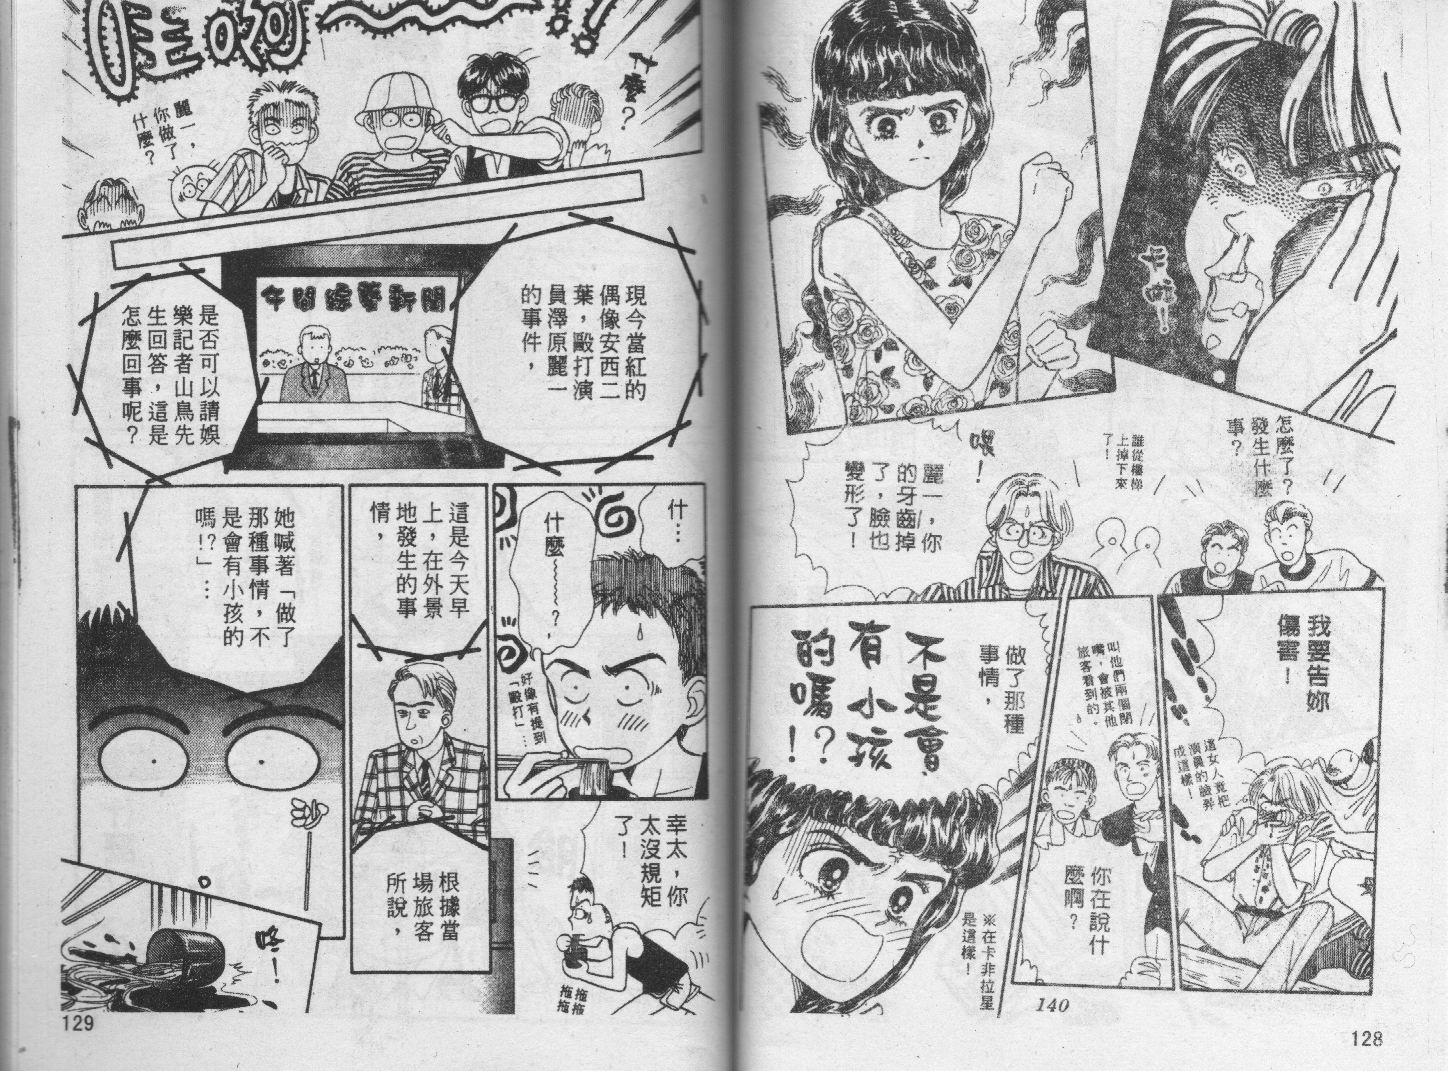 卡啦
怎麼了？
發生什麼
事？
誰從樓梯
上掉下來
了！
喂！
麗一，你
的牙齒掉
了，臉也
變形了！
我要告妳
傷害！
這女人竟把
演員的臉弄
成這樣
叫他們兩個閉
嘴，會被其他
旅客看到的。
你在說什
麼啊？
做了那種
事情，
不是會
有小孩
的嗎！？
※在卡非拉星
是這樣！
140
128
哇喲～～～！！
什麼？
麗一，
你做了
什麼？
現今當紅的
偶像安西二
葉，毆打演
員澤原麗一
的事件，
午間綜藝新聞
是否可以請娛
樂記者山鳥先
生回答，這是
怎麼回事呢？
什…
什麼～～～？，
好像有提到
「毆打」…
幸太，你
太沒規矩
了！
拖拖
拖拖
這是今天早
上，在外景
地發生的事
情，
根據當
場旅客
所說，
她喊著「做了
那種事情，不
是會有小孩的
嗎！？」…
沙
咚！
129